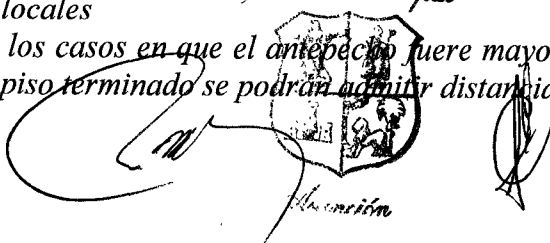 locales
los casos en que el antepecho fuere mayo
piso terminado se podrán admitir distancia
Asunción